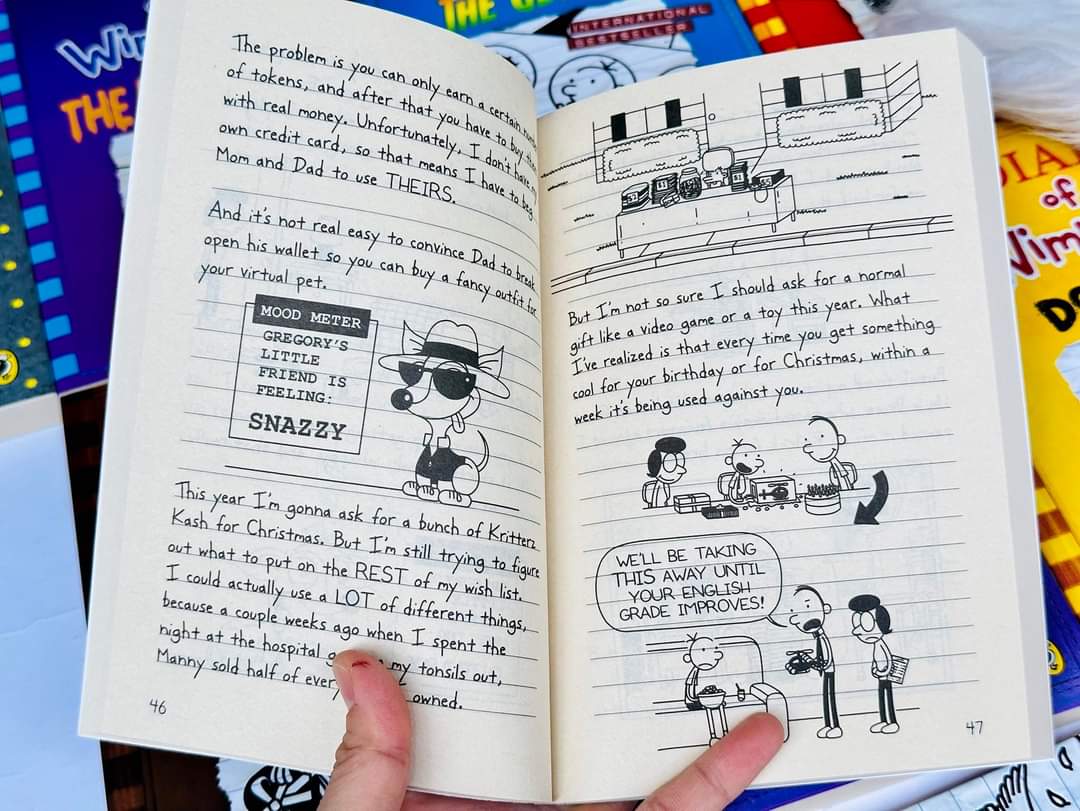 Wim
THE
THE
INTERNATIONAL
BESTSELLER
DIA
of
Wim
DO
The problem is you can only earn a certain
of tokens, and after that you have to buy
with real money. Unfortunately, I don't have my
own credit card, so that means I have to beg
Mom and Dad to use THEIRS.
And it's not real easy to convince Dad to break
open his wallet so you can buy a fancy outfit for
your virtual pet.
MOOD METER
GREGORY'S
LITTLE
FRIEND IS
FEELING:
SNAZZY
This year I'm gonna ask for a bunch of Kritterz
Kash for Christmas. But I'm still trying to figure
out what to put on the REST of my wish list.
I could actually use a LOT of different things,
because a couple weeks ago when I spent the
night at the hospital g my tonsils out,
Manny sold half of every owned.
46
But I'm not so sure I should ask for a normal
gift like a video game or a toy this year. What
I've realized is that every time you get something
cool for your birthday or for Christmas, within a
week it's being used against you.
WE'LL BE TAKING
THIS AWAY UNTIL
YOUR ENGLISH
GRADE IMPROVES!
47